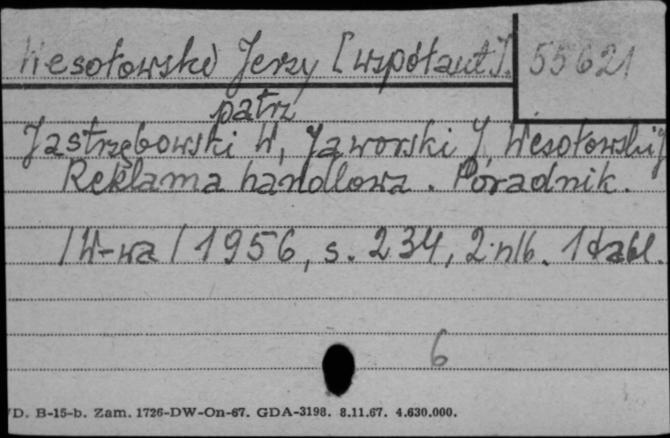 Wesołowski Jerzy [współaut.]. 55621
patrz
Jastrzębowski W, Jaworski J, Wesołowski J
Reklama handlowa. Poradnik.
/W-wa/ 1956, s. 234, 2 nlb. 1 tabl.
6
D. B-15-b. Zam. 1726-DW-On-67. GDA-3198. 8.11.67. 4.630.000.